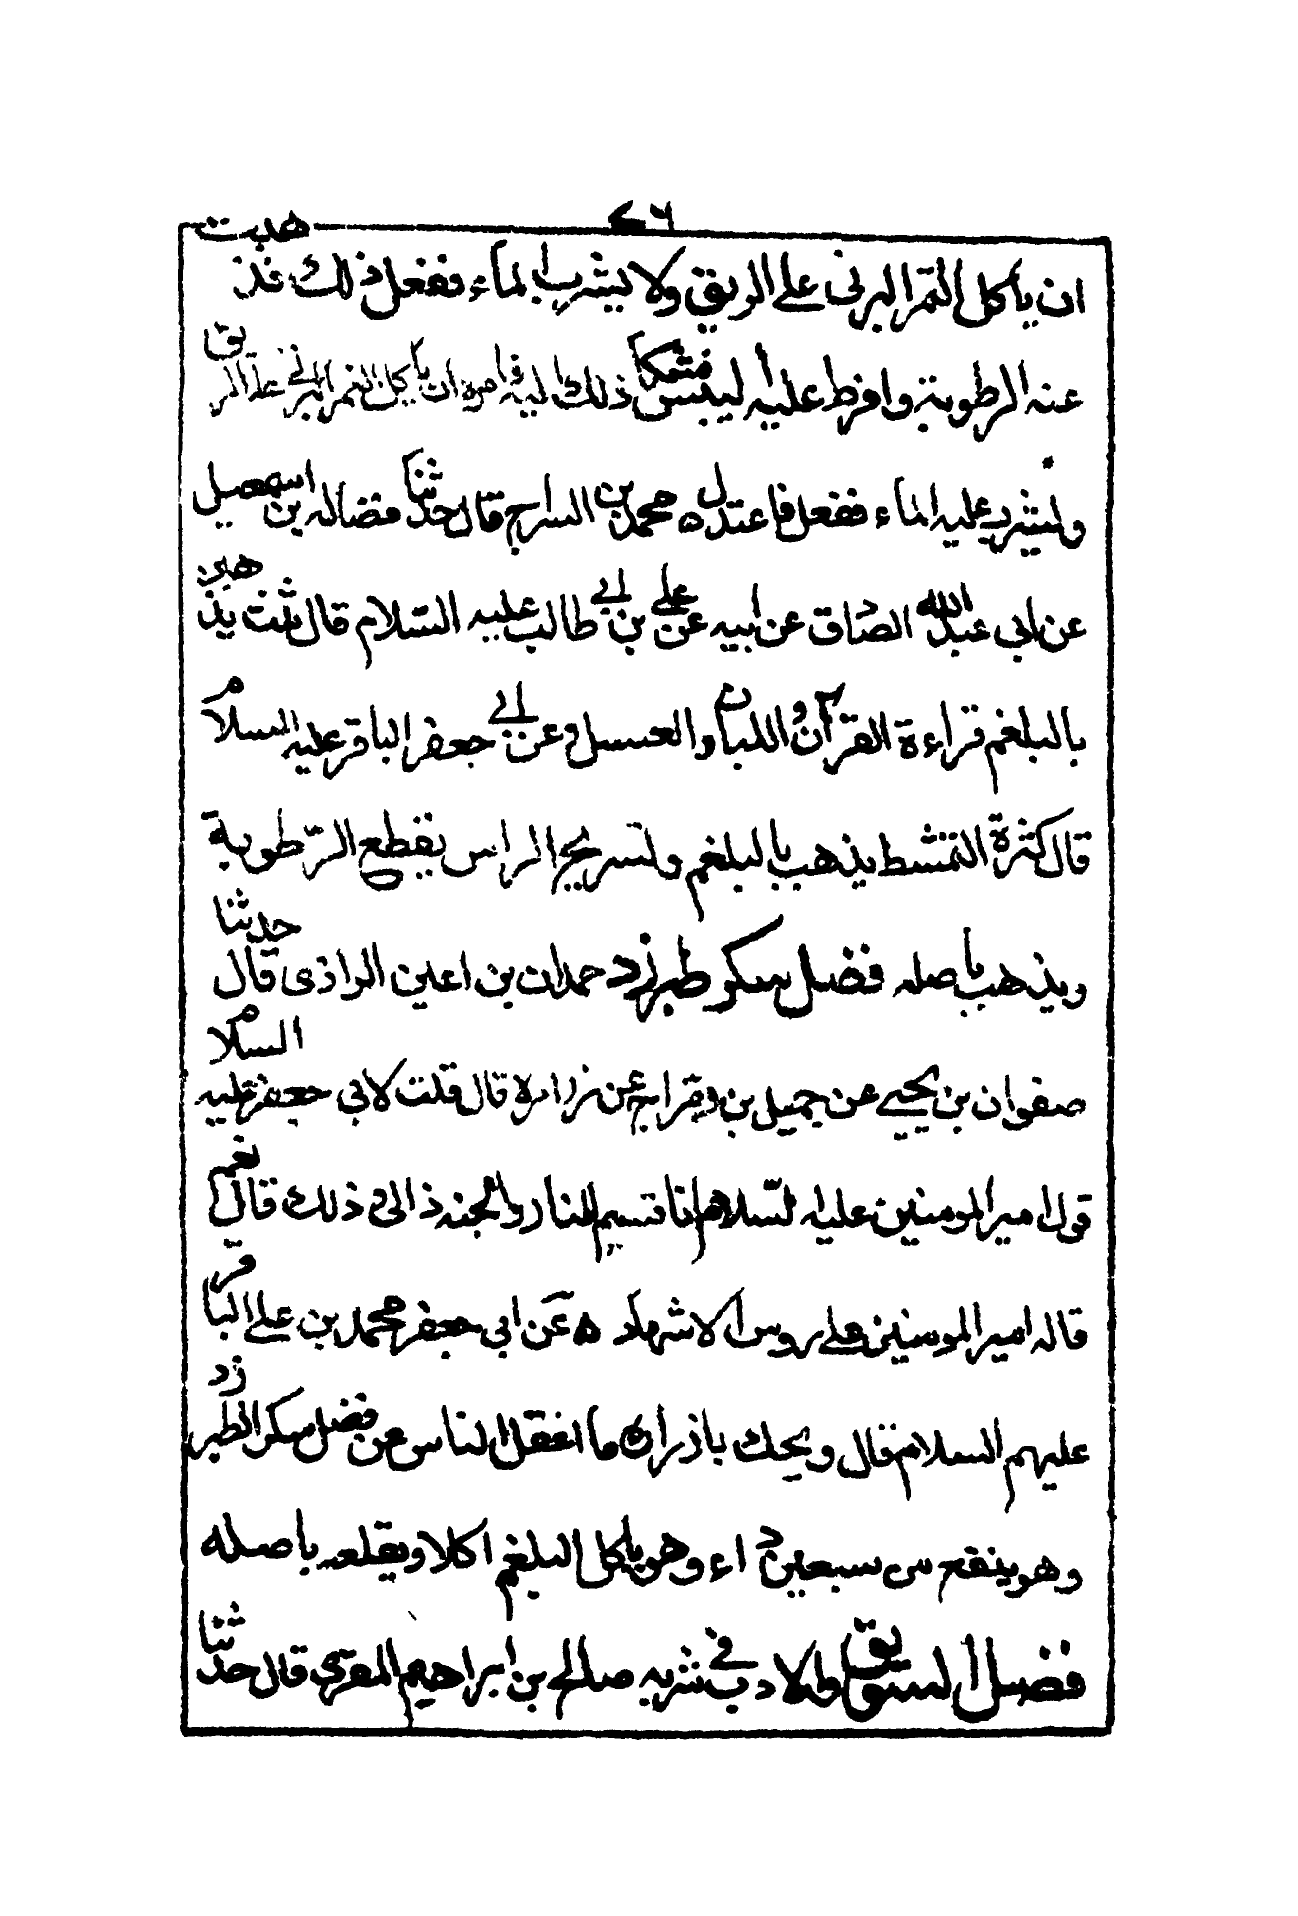 ٧٦
ان ياكل التمر البرنى على الريق ولا يشرب الماء ففعل ذلك فذهبت
عنه الرطوبة وافرط عليه اليبس فشكا ذلك اليه فامره ان ياكل التمر البرنى على الريق
ويشرب عليه الماء ففعل فاعتدل ه محمد بن السراج قال حدثنا فضاله بن اسمعيل
عن ابى عبدالله الصادق عن ابيه عن على بن ابى طالب عليه السلام قال ثلث يذهبن
بالبلغم قراءة القرآن و اللبان والعسل وعن ابى جعفر الباقر عليه السلام
قال كثرة التمشط يذهب بالبلغم وتسريح الراس يقطع الرّطوبة
ويذهب باصله فضل سكر طبرزد حمدان بن اعين الرازى قال حدثنا
صفوان بن يحيى عن جميل بن دراج عن زراره قال قلت لابى جعفر عليه السلام
قول امير المومنين عليه السّلام انا قسيم النار والجنه ذا الى ذلك قال لى نعم
قاله امير المومنين على روس الاشهاد ه عن ابى جعفر محمد بن على الباقر
عليهم السلام قال ويحك يا زراره ما اغفل الناس عن فضل سكر الطبرزد
وهو ينفع من سبعين داء وهو ياكل البلغم اكلا ويقلعه باصله
فضل السويق والادب فى شربه صالح بن ابراهيم المقرى قال حدثنا